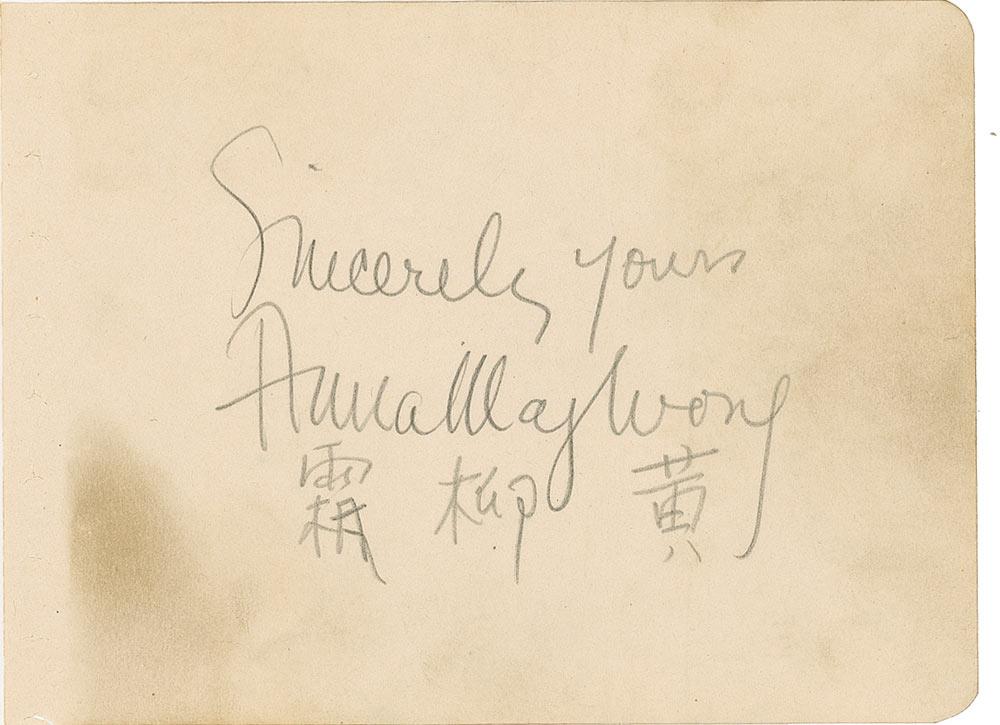 Sincerely yours
Anna May Wong
霜柳黃